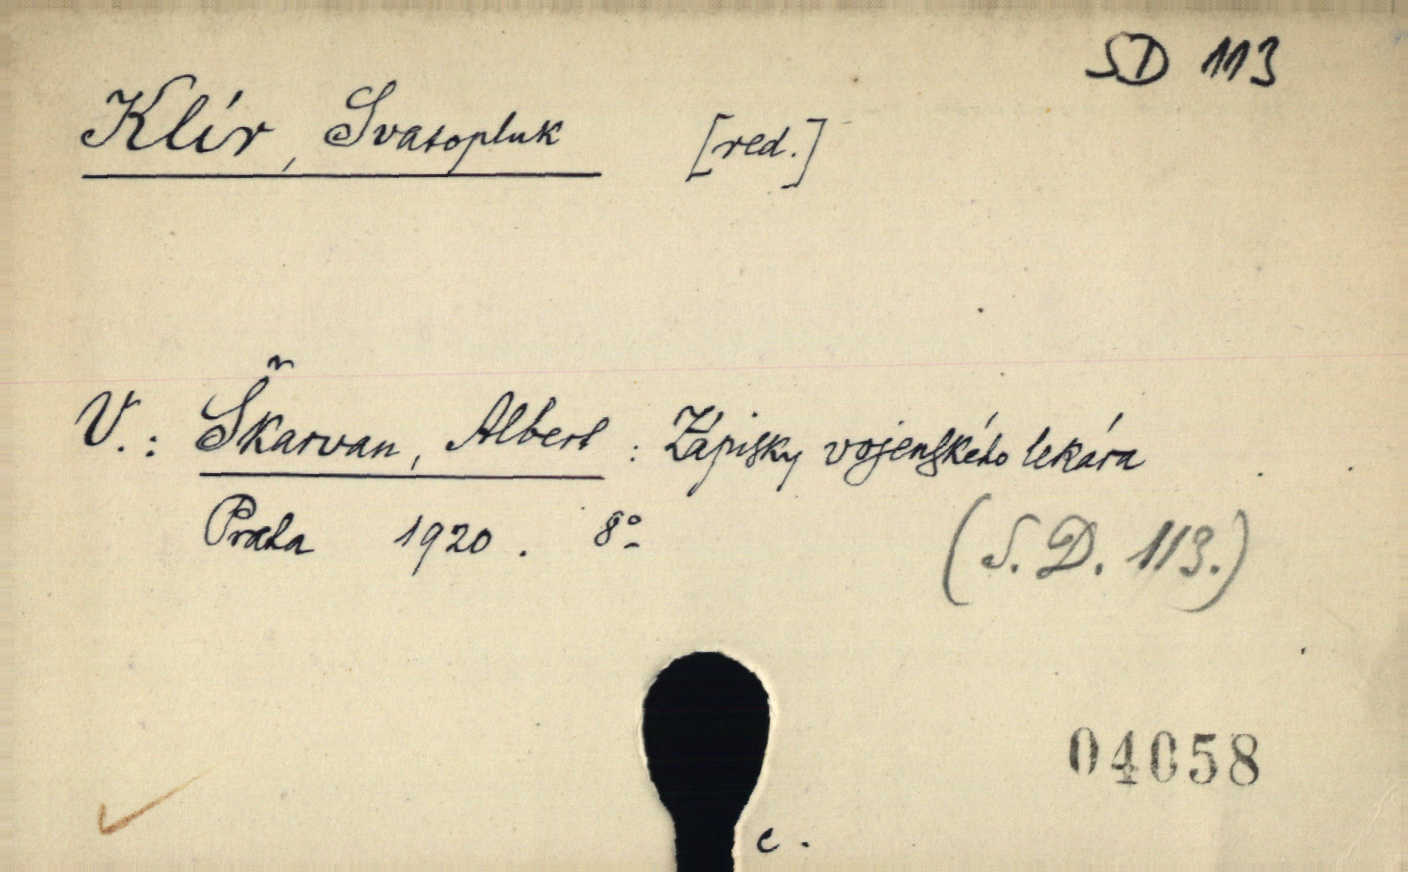 SD 113
Klír, Svatopluk [red.]
V.: Škarvan, Albert : Zápisky vojenského lekára
Praha 1920. 8°
(S. D. 113.)
04058
c.